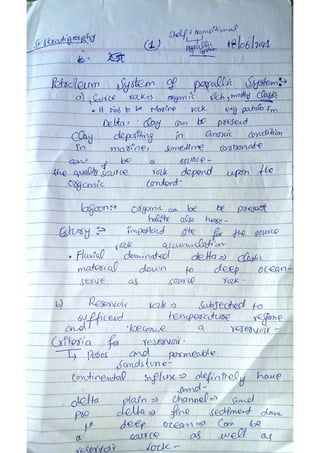 Shelf + transitional
Stratigraphy (1) Parallic system 18/06/2021
Petroleum System of parallic System:-
a) Source rock → organic rich, mostly clastic
• It has to be Marine rock e.g patala Fm
Delta → Clay can be present
Clay depositing in anoxic condition
In marine, sometime carbonate
can be a source -
the quality source rock depend upon the
organic content.
Lagoon → organic can be be present
halite also here -
Estury → important site for the source
rock accumulation -
• Fluvial dominated delta → Clastic
material down to deep ocean -
serve as source rock -
b) Reservoir rock → Subjected to
sufficent temperature regime
and become a reservoir -
Criteria for reservoir -
↳ Pores and permeable
sandstone -
Continental influx → definitely have
sand -
delta plain → channel → sand
pro delta → fine sediment down
deep ocean → Can be
a source as well as
reservoir rock -